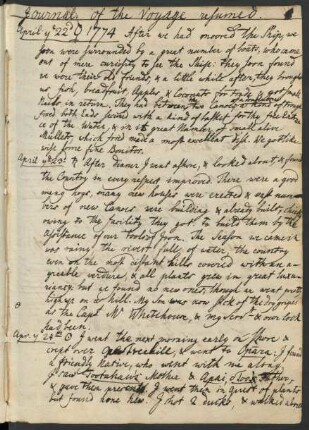 Journal of the Voyage resumed.
April ye 22d 1774 After we had moored the Ship, we
soon were surrounded by a great number of boats, who came
out of mere curiosity to see the Ship. They soon found
we were their old friends, & a little while after, they brought
us fish, breadfruit, Apples & Coconuts for trade & got
Nails in return. They had between two Canoes a
fixed both Ends served with a kind of basket for the free
of the Water, & in it great Number of small alive
Mullets, which fried made a most excellent dish. We got like-
wise some fine Bonitos.
April ye 23d After dinner I went ashore, & looked about & found
the Country in every respect improved. There were a good
many hogs, many new houses were erected & vast num-
bers of new Canoes were building & already built, chiefly
owing to the facility they got to build them by the
assistance of our tools of Iron. The Season we came in
was rainy the rivers full of water, the country
even on the most distant hills covered with an a-
greable verdure, & all plants grew in great luxu-
riance, but we found no new ones, though we went pretty
high up on a hill. My Son was now sick of the
as the Capt Mr Whitehouse, & my Serv. & our Cook
had been.
Apr. ye 24th I went the next morning early on Shore &
went over Onetreehill & went to I found
a friendly Native, who went with me along
I saw Tootahah's Mother &
& gave them presents. I went then in quest of plants
but found none new. I shot 2 ducks, & walked about